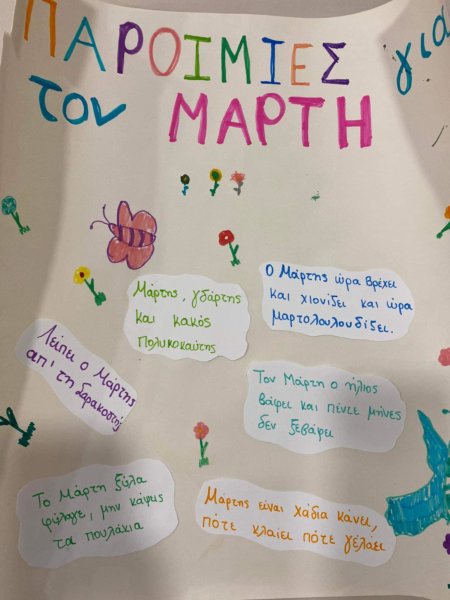 ΠΑΡΟΙΜΙΕΣ για
τον ΜΑΡΤΗ
Μάρτης, γδάρτης
και κακός
πολυκοκαύτης
Ο Μάρτης ώρα βρέχει
και χιονίζει και ώρα
μαρτολουλουδίζει.
Λείπει ο Μάρτης
απ' τη Σαρακοστή;
Τον Μάρτη ο ήλιος
βάφει και πέντε μήνες
δεν ξεβάφει
Το Μάρτη ξύλα
φύλαγε, μην κάψεις
τα πουλάκια
Μάρτης είναι χάδια κάνει,
πότε κλαίει πότε γελάει